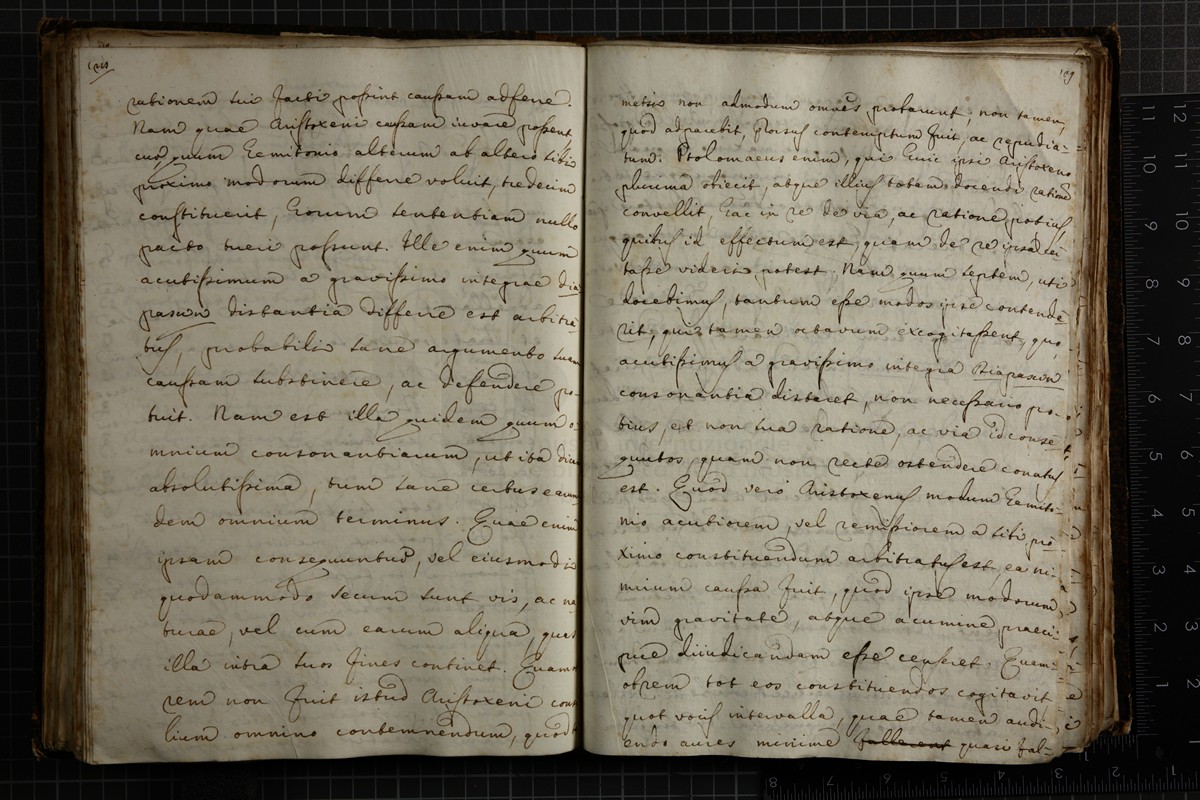 rationem sui facti possint caussam adferre.
Nam quae Aristoxeni caussam iuvare possent
cur, quum Hemitonio alterum ab altero sibi
proximo modorum differre voluit, tredecim
constituerit, horum sententiam nullo
pacto tueri possunt. Ille enim quum
acutissimum a gravissimo integrae dia
pasωn distantia differre est arbitra
tus, probabili sane argumento suam
caussam substinere, ac defendere po-
tuit. Nam est illa quidem quum o
mnium consonantiarum, ut ita dicam
absolutissima, tum sane certus earun
dem omnium terminus. Quae enim
ipsam consequuntur, vel eiusmodi
quodammodo secum sunt vis, ac na
turae, vel cum earum aliqua, quas
illa intra suos fines continet. Quam
rem non fuit istud Aristoxeni consi
lium omnino contemnendum, quod
189
metsi non admodum omnes probarunt, non tamen,
quod adparebit, prorsus contemptum fuit, ac repudia-
tum. Ptolomaeus enim, qui huic ipsi Aristoxeno
plurima obiecit, atque illius totam docendi rationem
convellit, hac in re de via, ac ratione potius
quibus id effectum est, quam de re ipsa
tasse videri potest. Nam quum septem, uti
docebimus, tantum esse modos ipse contende
rit, qui tamen octavum excogitassent, quo
acutissimus a gravissimo integra Diapasωn
consonantia distaret, non necessario po-
tius, et non sua ratione, ac via id conse
quutos, quam non recte ostendere conatus
est. Quod vero Aristoxenus modum Hemito-
nio acutiorem, vel remissiorem a sibi pro
ximo constituendum arbitratus est, ea ni
mirum caussa fuit, quod ipse modorum
vim gravitate, atque acumine praeci-
pue diiudicandam esse censeret. Quam-
obrem tot eos constituendos cogitavit
quot vocis intervalla, quae tamen audi-
endo aures minime fallerent quasi fal-